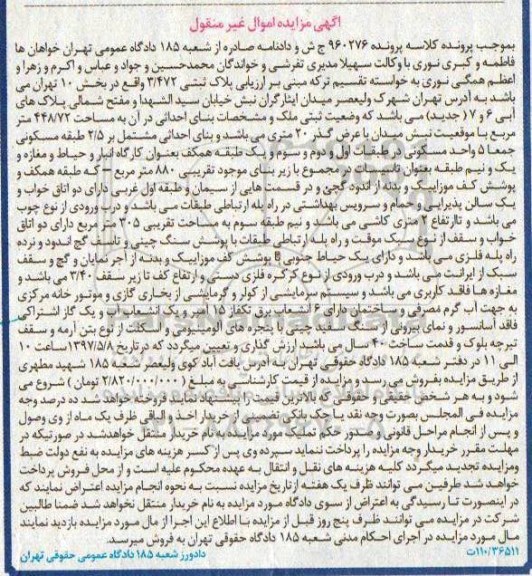 آگهی مزایده اموال غیر منقول
بموجب پرونده کلاسه پرونده ۹۶۰۲۷۶ ج ش و دادنامه صادره از شعبه ۱۸۵ دادگاه عمومی تهران خواهان ها
فاطمه و کبری نوری با وکالت سهیلا مدیری تفرشی و خواندگان محمدحسین و جواد و عباس و اکرم و زهرا و
اعظم همگی نوری به خواسته تقسیم ترکه مبنی بر ارزیابی پلاک ثبتی ۳/۴۷۲ واقع در بخش ۱۰ تهران می
باشد به آدرس تهران شهرک ولیعصر میدان ایثارگران نبش خیابان سید الشهدا و مفتح شمالی پلاک های
آبی ۶ و ۷ (جدید) می باشد که وضعیت ثبتی ملک و مشخصات بنای احداثی در آن به مساحت ۴۴۸/۷۲ متر
مربع با موقعیت نبش میدان با عرض گذر ۲۰ متری می باشد و بنای احداثی مشتمل بر ۲/۵ طبقه مسکونی
جمعا ۵ واحد مسکونی در طبقات اول و دوم و سوم و یک طبقه همکف بعنوان کارگاه انبار و حیاط و مغازه و
یک و نیم طبقه بعنوان تاسیسات در مجموع با زیر بنای موجود تقریبی ۸۸۰ متر مربع که طبقه همکف و
پوشش کف موزاییک و بدنه از اندود گچی و در قسمت هایی از سیمان و طبقه اول غربی دارای دو اتاق خواب و
یک سالن پذیرایی و حمام و سرویس بهداشتی در راه پله ارتباطی طبقات می باشد و درب ورودی از نوع چوب
می باشد و تاارتفاع ۲ متری کاشی می باشد و نیم طبقه سوم به مساحت تقریبی ۳۰۵ متر مربع دارای دو اتاق
خواب و سقف از نوع سبک موقت و راه پله ارتباطی طبقات با پوشش سنگ چینی و تاسقف گچ اندود و نرده
راه پله فلزی می باشد و دارای یک حیاط جنوبی با پوشش کف موزاییک و بدنه از آجر نمایان و گچ و سقف
سبک از ایرانت می باشد و درب ورودی از نوع کرکره فلزی دستی و ارتفاع کف تا زیر سقف ۳/۴۰ می باشد و
مغازه ها فاقد کاربری می باشد و سیستم سرمایشی از کولر و گرمایشی از بخاری گازی و موتور خانه مرکزی
به جهت آب گرم مصرفی و ساختمان دارای ۶ انشعاب برق تکفاز ۱۵ آمپر و یک انشعاب آب و یک گاز اشتراکی
فاقد آسانسور و نمای بیرونی از سنگ سفید چینی با پنجره های آلومینیومی و اسکلت از نوع بتن آرمه و سقف
تیرچه بلوک و قدمت ساخت ۴۰ سال می باشید ارزش گذاری و تعیین میگردد که در تاریخ ۱۳۹۷/۵/۸ ساعت ۱۰
الی ۱۱ در دفتر شعبه ۱۸۵ دادگاه حقوقی تهران به آدرس یافت آباد کوی ولیعصر شعبه ۱۸۵ شهید مطهری
از طریق مزایده بفروش می رسد و مزایده از قیمت کارشناسی به مبلغ (۲/۸۲۰/۰۰۰/۰۰۰ تومان) شروع می
شود و به هر شخص حقیقی حقوقی که بالاترین قیمت را پیشنهاد نمایند فروخته خواهد شد ده درصد وجه
مزایده فی المجلس بصورت وجه نقد یا چک بانکی تضمینی از خریدار اخذ و الباقی ظرف یک ماه از وی وصول
و پس از انجام مراحل قانونی و صدور حکم تملیک مورد مزایده به نام خریدار منتقل خواهدشد در صورتیکه در
مهلت مقرر خریدار وجه مزایده را پرداخت ننماید سپرده وی پس از کسر هزینه های مزایده به نفع دولت ضبط
ومزایده تجدید میگردد کلیه هزینه های نقل و انتقال به عهده محکوم علیه است و از محل فروش پرداخت
خواهد شد طرفین می توانند ظرف یک هفته از تاریخ مزایده نسبت به نحوه انجام مزایده اعتراض نمایند که
در اینصورت تا رسیدگی به اعتراض از سوی دادگاه مورد مزایده به نام خریدار منتقل نخواهد شد ضمنا طالبین
شرکت در مزایده می توانند ظرف پنج روز قبل از مزایده با اطلاع این اجرا از مال مورد مزایده بازدید نمایند
مال مورد مزایده در اجرای احکام مدنی شعبه ۱۸۵ دادگاه حقوقی تهران به فروش میرسد.
۱۱۰/۳۶۵۱۱ت
دادورز شعبه ۱۸۵ دادگاه عمومی حقوقی تهران